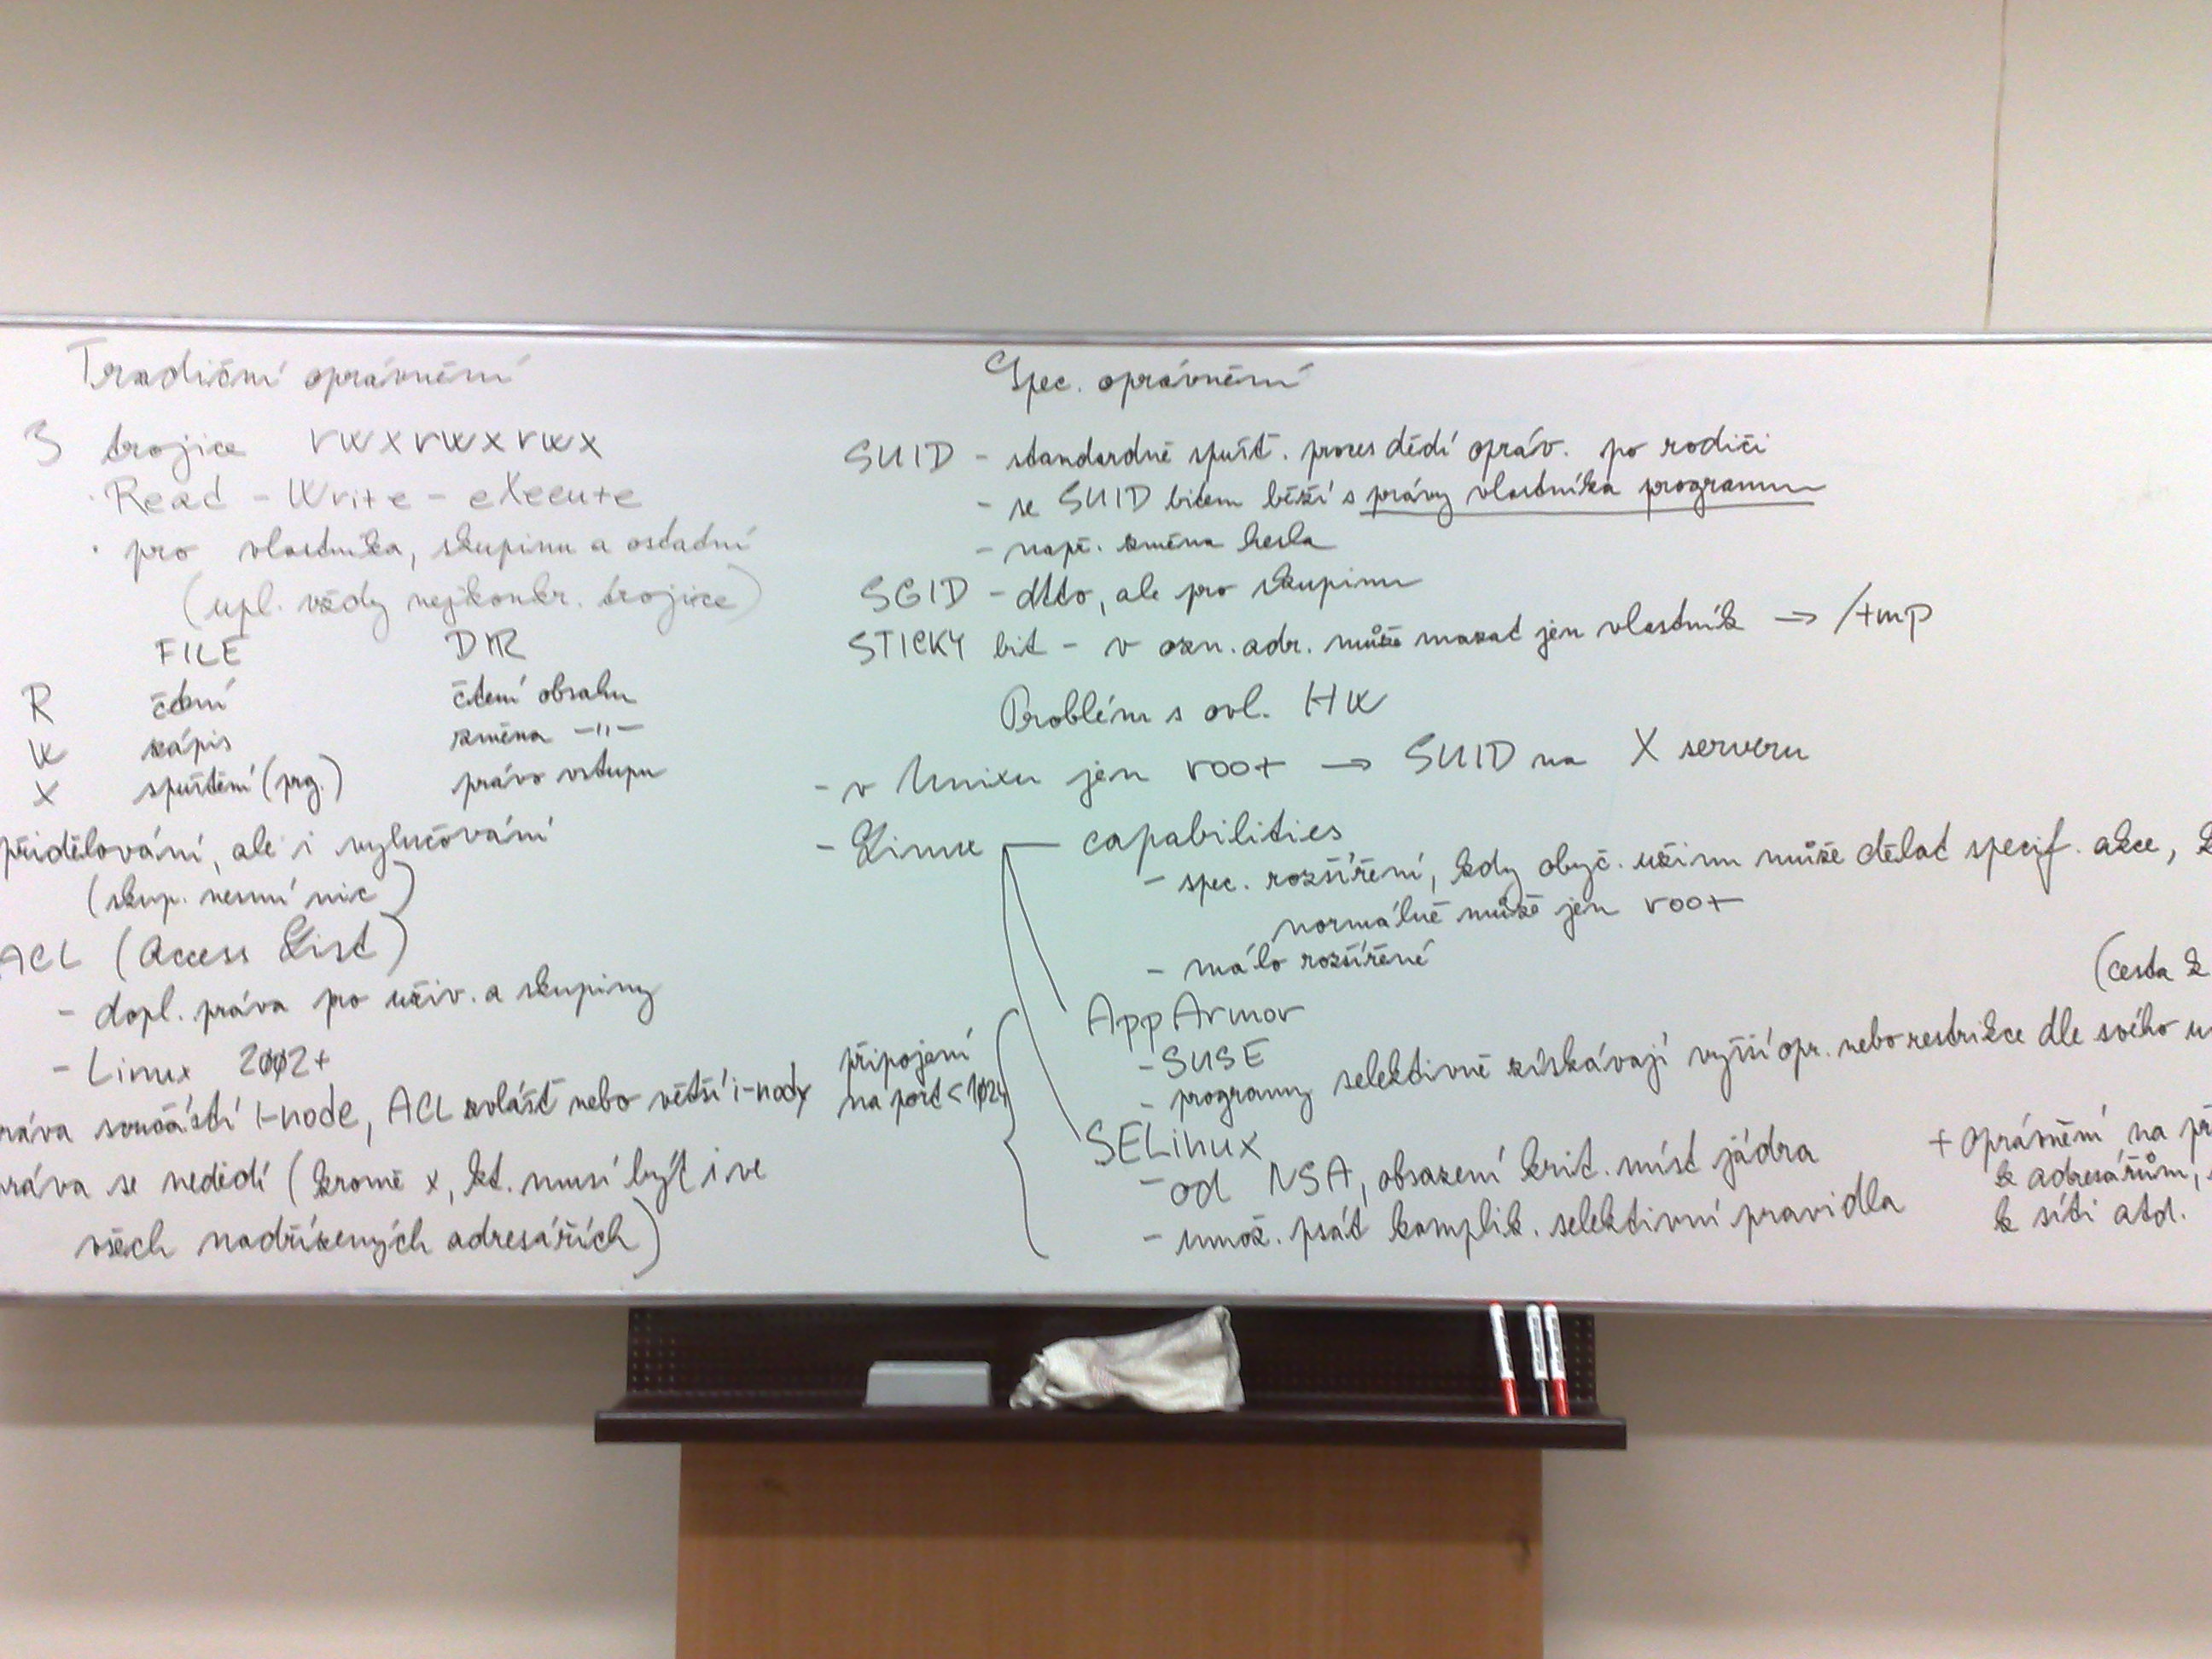 Tradiční oprávnění
3 trojice rwxrwxrwx
· Read - Write - eXecute
· pro vlastníka, skupinu a ostatní
(upl. vždy nejkonkr. trojice)
FILE DIR
R čtení čtení obsahu
W zápis změna -"-
X spuštění (prg.) právo vstupu
přidělování, ale i vylučování
(skup. nesmí nic)
ACL (Access List)
- dopl. práva pro uživ. a skupiny
- Linux 2002+
ráva součástí i-node, ACL zvlášť nebo větší i-nody
ráva se nedědí (kromě x, kt. musí být i ve
všech nadřízených adresářích)
Spec. oprávnění
SUID - standardně spušt. proces dědí opráv. po rodiči
- se SUID bitem běží s právy vlastníka programu
- např. změna hesla
SGID - dtto, ale pro skupinu
STICKY bit - v ozn. adr. může mazat jen vlastník → /tmp
Problém s ovl. HW
- v Unixu jen root → SUID na X serveru
- Linux capabilities
- spec. rozšíření, kdy obyč. uživ. může dělat specif. akce,
normálně může jen root
- málo rozšířené
připojení
na port <1024
AppArmor
- SUSE
(cesta k
- programy selektivně získávají vyšší opr. nebo restrikce dle svého
SELinux
- od NSA, obsazení krit. míst jádra
- umož. psát komplik. selektivní pravidla
+ oprávnění na př
k adresářům,
k síti atd.